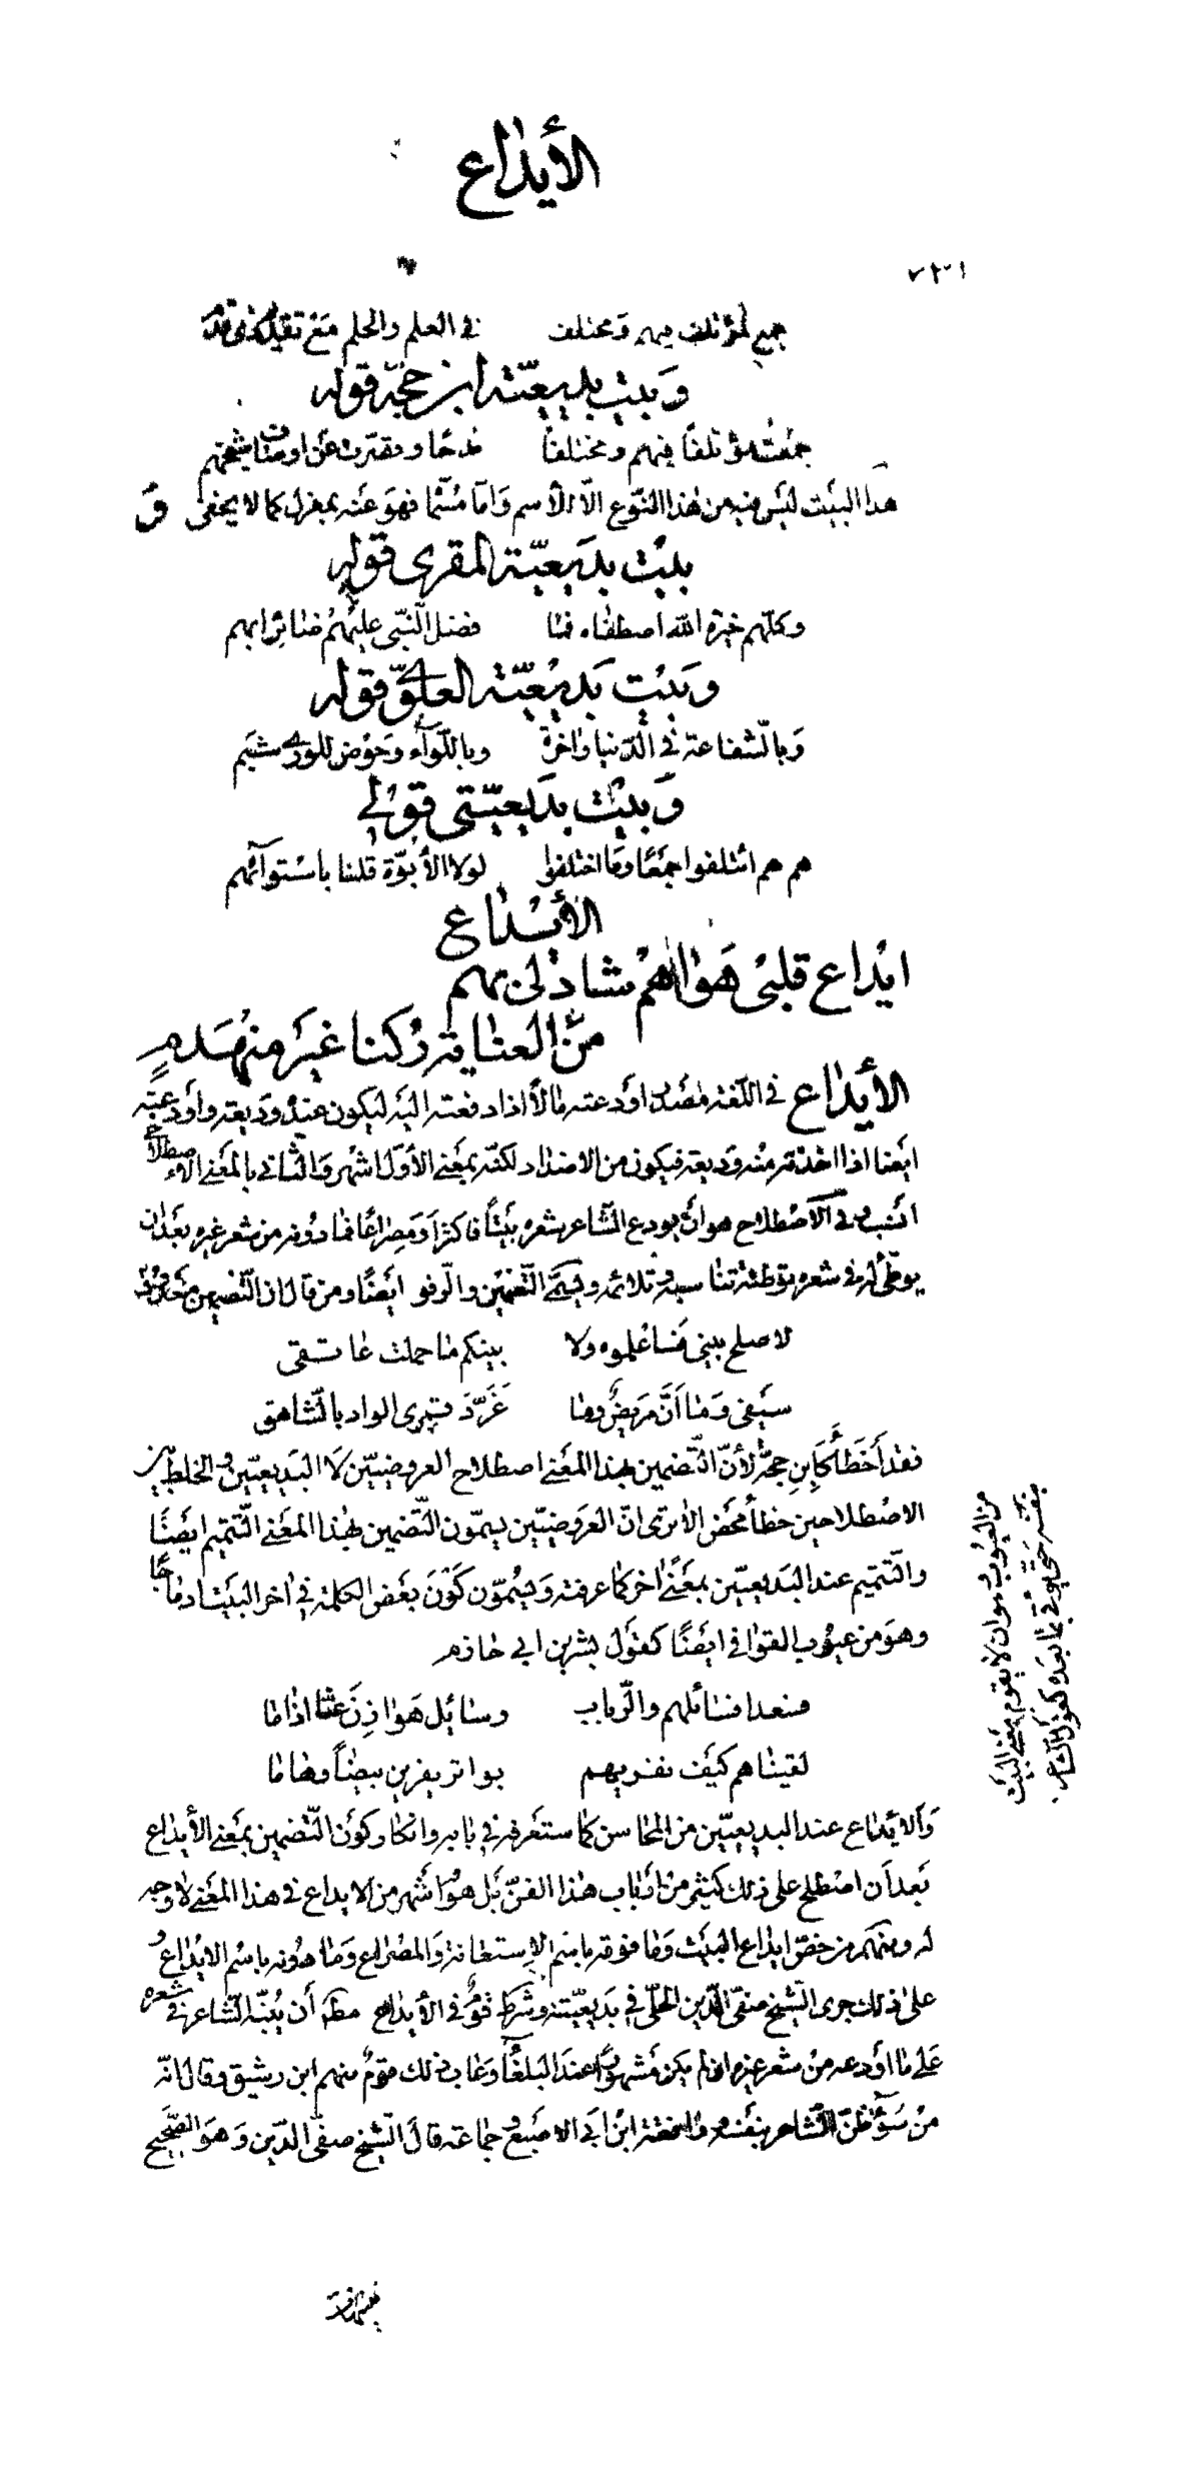 الأيداع
جمع لمؤتلف فيهم ومختلف في العلم والحلم مع تقديم ذي قدم
وبيت بديعيّة ابن حجّة قوله
جمعت مؤتلفًا فيهم ومختلفًا مدحًا وقصّرت عن اوصاف شيخهم
هذا البيت ليس فيه من هذا النّوع الّا الاسم وامّا مسمّا فهو عنه بمعزل كما لا يخفى وَ
بيت بديعيّة المقري قوله
وكلّهم خيرة اللّه اصطفاه فما فضل النّبي عليهم ضائر ابهم
وبيت بديعيّة العلويّ قوله
وبالشّفاعة في الدّنيا واخرة وباللّوآء وحوض للورى شبم
وبيت بديعيّتي قولي
هم هم ائتلفوا جمعًا وما اختلفوا لولا الأبوّة قلنا باستوآئهم
الأيداع
ايداع قلبي هواهم شاد لي بهم
من العناية ركنا غير منهدم
الأيداع في اللّغة مصدر اودعته مالًا اذا دفعته اليه ليكون عنده وديعة واودعته
ايضا اذا اخذته منه وديعة فيكون من الاضداد لكنّه بمعنى الأوّل اشهر والثّاني بالمعنى الاصطلاحي
انسب وفي الاصطلاح هو ان يودع الشّاعر شعره بيتًا فاكثر او مصراعًا فما دونه من شعر غيره بعد ان
يوطّئ له في شعره توطئة تناسبه وتلائمه ويسمّى التّضمين والرّفو ايضًا ومن قال ان التّضمين
من العيوب وهو ان لا يقوم معنى البيت
بنفسه حتّى يؤتى بما بعده كقول الشّاعر
لا صلح بيني فاعلموه ولا بينكم ما حملت عاتقي
سيفي وما انّ مريض وما غرّد قمري الواد بالشّاهق
فقد أخطأ كابن حجّة لأنّ التّضمين بهذا المعنى اصطلاح العروضيّين لا البديعيّين والخلط بين
الاصطلاحين خطأ محض الا ترى انّ العروضيّين يسمّون التّضمين بهذا المعنى التّتميم ايضًا
والتّتميم عند البديعيّين بمعنى اخر كما عرفته ويسمّون كون بعض الكلمة في اخر البيت ادماجًا
وهو من عيوب القوافي ايضًا كقول بشر بن ابي خازم
فسعدا فسائلهم والرّباب وسائل هوازن عنّا اذا ما
لقيناهم كيف نفريهم بواتر يفرين بيضًا وهاما
والايداع عند البديعيّين من المحاسن كما ستعرفه في بابه وانكار كون التّضمين بمعنى الأيداع
بعد ان اصطلح على ذلك كثير من ارباب هذا الفنّ بل هو اشهر من الايداع في هذا المعنى لا وجه
له ومنهم من خصّ ايداع البيت وما فوقه باسم الاستعانة والمصراع وما دونه باسم الايداع و
على ذلك جرى الشّيخ صفيّ الدّين الحلّي في بديعيّته وشرط قوم في الأيداع أن ينبّه الشّاعر في شعره
على ما اودعه من شعر غيره ان لم يكن مشهورًا عند البلغآء وعاب ذلك قوم منهم ابن رشيق وقال انّه
من سوء ظنّ الشّاعر بنفسه ووافقه ابن ابي الاصبع وجماعة قال الشّيخ صفيّ الدّين وهو الصّحيح